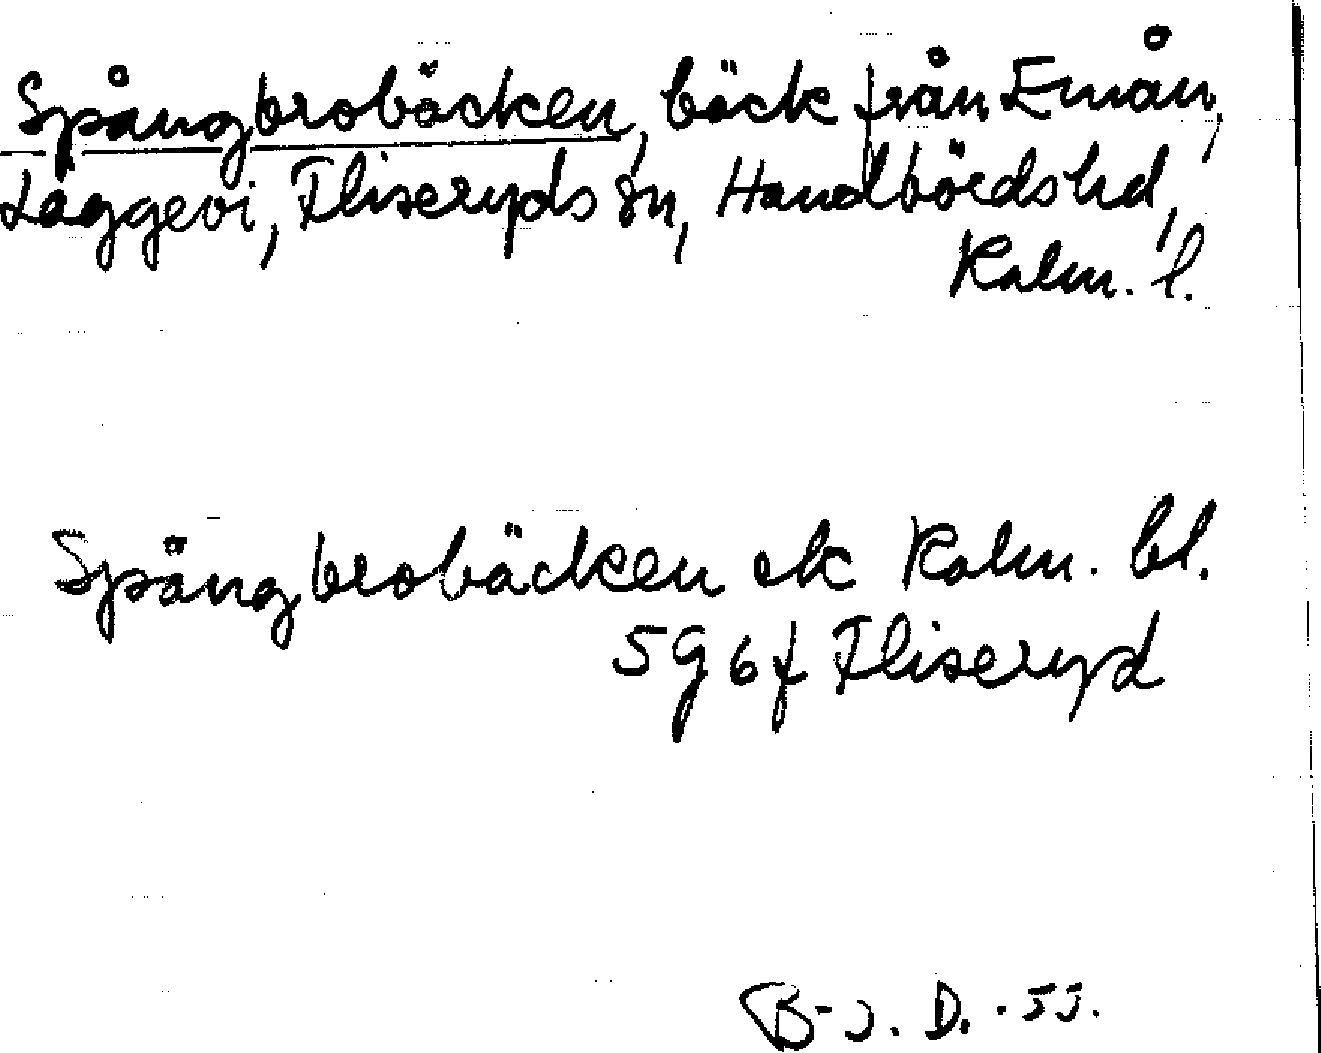 Spångbrobäcken, bäck från Emån,
Läggevi, Fliseryds sn, Handbörds hd,
Kalm. l.
Spångbrobäcken ek Kalm. bl.
5 g 6 f Fliseryd
B-J. D. -55.